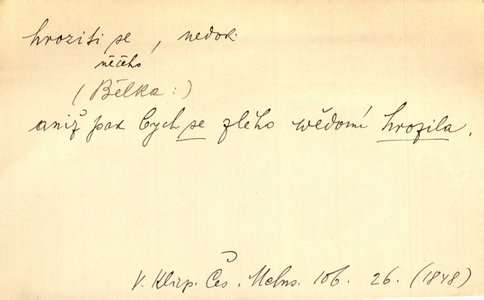 hroziti se, nedok.
něčeho
(Bělka:)
aniž pak bych se zlého wědomí hrozila.
V. Klicp. Čes. Melns. 106. 26. (1848)